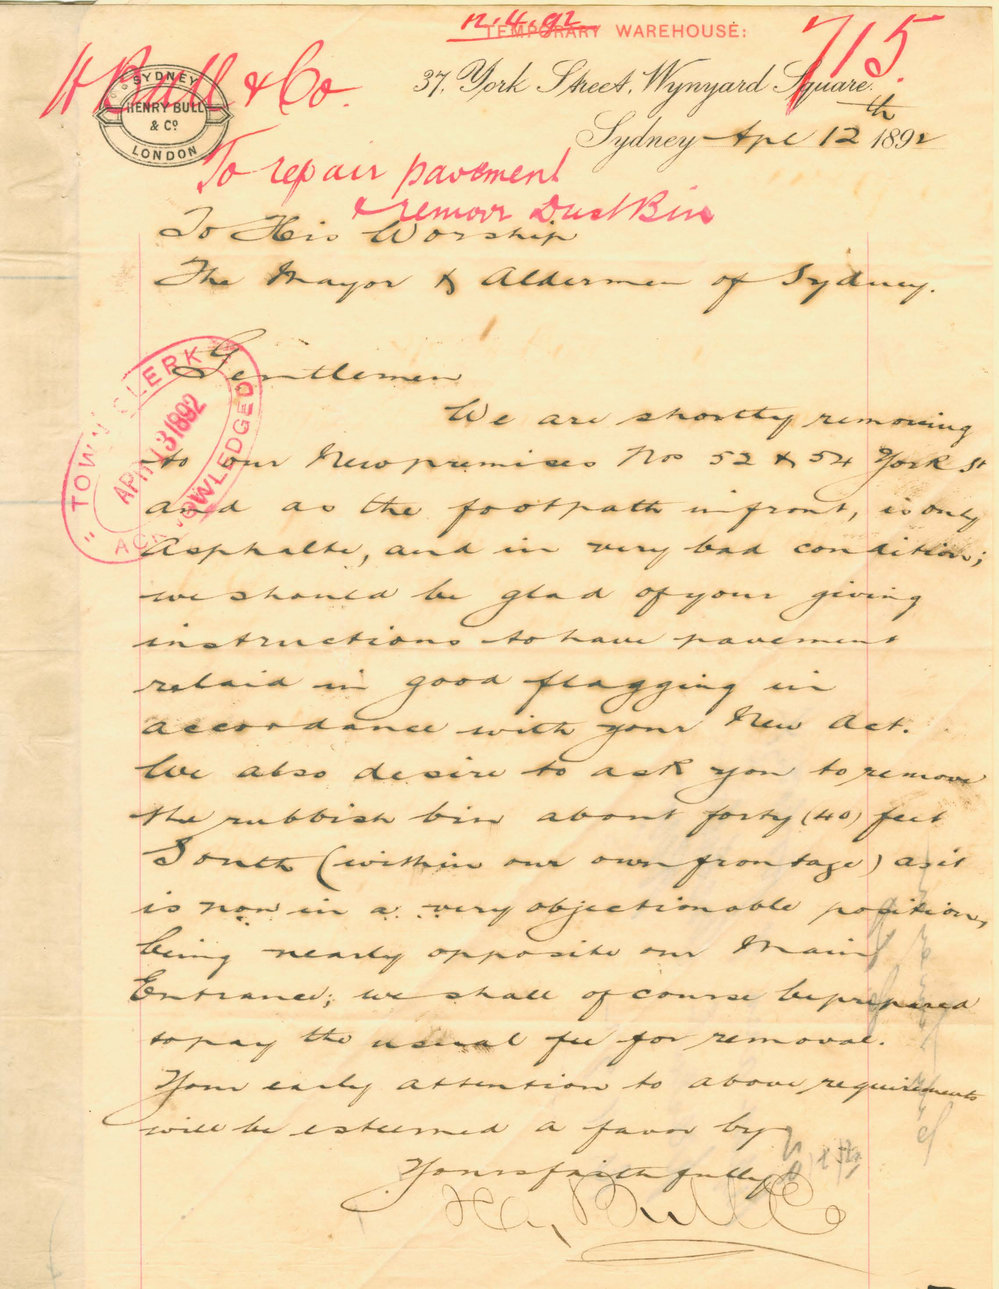 12.4.92
TEMPORARY WAREHOUSE:
715.
H Bull & Co.
SYDNEY
HENRY BULL
& Co
LONDON
37, York Street, Wynyard Square.
Sydney Apl 12th 1892
To repair pavement
& remove Dust Bin
To His Worship
The Mayor & Aldermen of Sydney.
Gentlemen
"TOWN CLERK"
APR 13 1892
ACKNOWLEDGED
We are shortly removing
to our New premises Nos 52 & 54 York St
and as the footpath in front, is only
Asphalte, and in very bad condition;
we should be glad of your giving
instructions to have pavement
relaid in good flagging in
accordance with your New Act.
We also desire to ask you to remove
the rubbish bin about forty (40) feet
South (within our own frontage) as it
is now in a very objectionable position,
being nearly opposite our Main
Entrance; we shall of course be prepared
to pay the usual fee for removal.
Your early attention to above requirements
will be esteemed a favor by
Yours faithfully
Hy Bull & Co